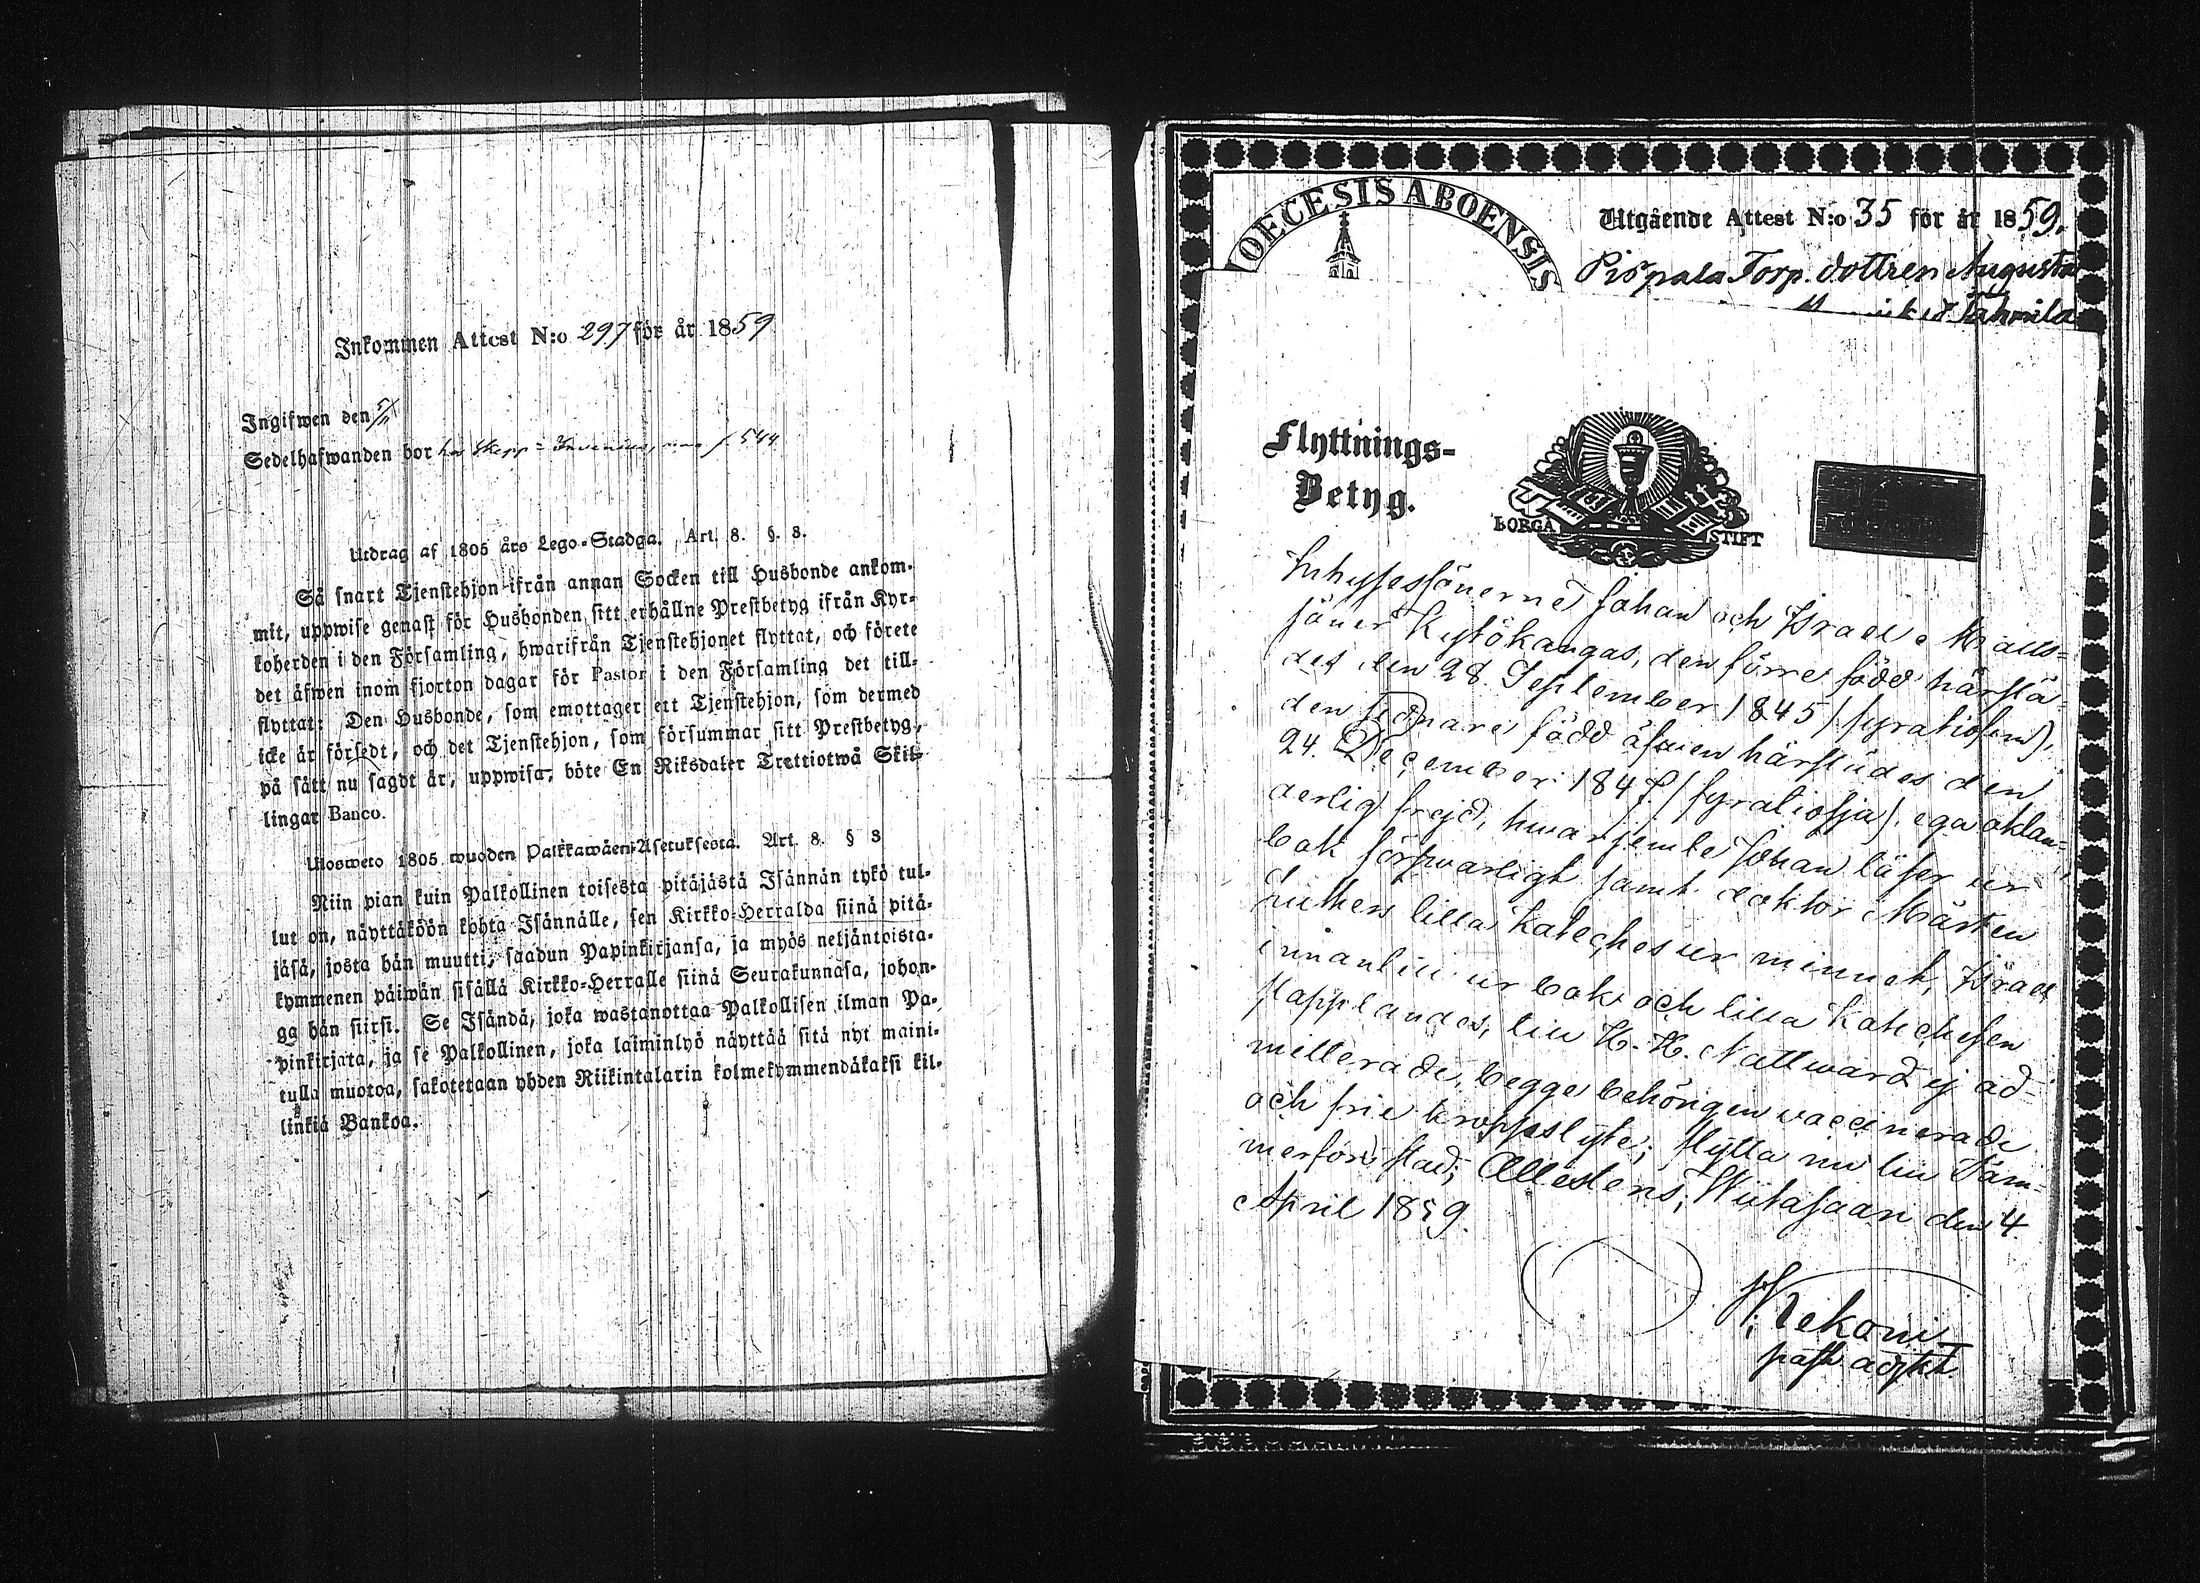 Inkommen Attest N:o 297 för år 1859
Ingifwen den 5/11
Sedelhafwanden bor hos Skepp= 544
Utdrag af 1805 års Lego-Stadga. Art. 8. §. 3.
Så snart Tjenstehjon ifrån annan Socken till Husbonde ankom-
mit, uppwise genast för Husbonden sitt erhållne Prestbetyg ifrån Kyr-
koherden i den Församling, hwarifrån Tjenstehjonet flyttat, och förete
det äfwen inom fjorton dagar för Pastor i den Församling det till-
flyttat: Den Husbonde, som emottager ett Tjenstehjon, som dermed
icke är försedt, och det Tjenstehjon, som försummar sitt Prestbetyg,
på sätt nu sagdt är, uppwisa, böte En Riksdaler Trettiotwå Skil-
lingar Banco.
Ulosweto 1805 wuoden Palkkawäen-Asetuksesta. Art. 8. § 3
Niin pian kuin Palkollinen toisesta pitäjästä Isännän tykö tul-
lut on, näyttäköön kohta Isännälle, sen Kirkko-Herralda siinä pitä-
jäsä, josta hän muutti, saadun Papinkirjansa, ja myös neljäntoista-
kymmenen päiwän sisällä Kirkko-Herralle siinä Seurakunnasa, johon-
ga hän siirsi. Se Isändä, joka wastanottaa Palkollisen ilman Pa-
pinkirjata, ja se Palkollinen, joka laiminlyö näyttää sitä nyt maini-
tulla muotoa, sakotetaan yhden Riikintalarin kolmekymmendäkaksi kil-
linkiä Bankoa.
OECESIS ABOENSIS
Utgående Attest N:o 35 för år 1859.
Pispala Torp. dottren Augusta
Tahmila
Flyttnings-
Betyg.
BORGÅ STIFT
Inhysessönerne Johan och Israel Matts=
söner Kytökangas, den förre född härstä-
des den 28 September 1845 (fyratiofem),
den sednare född äfwen härstädes den
24 December 1847 (fyratiosju), ega oklan=
derlig frejd, hwarjemte Johan läser ur
bok försvarligt samt doktor Mårten
Luthers lilla Kateches ur minnet, Israel
innantill ur bok och lilla Katechesen
stapplandes, till H. H. Nattward ej ad-
mitterade, begge behörigen vaccinerade
och frie kroppslyte; flytta nu till Tam-
merfors stad; Attesteras, Wiitasaari den 4
April 1859.
Kekoni
past adjkt.